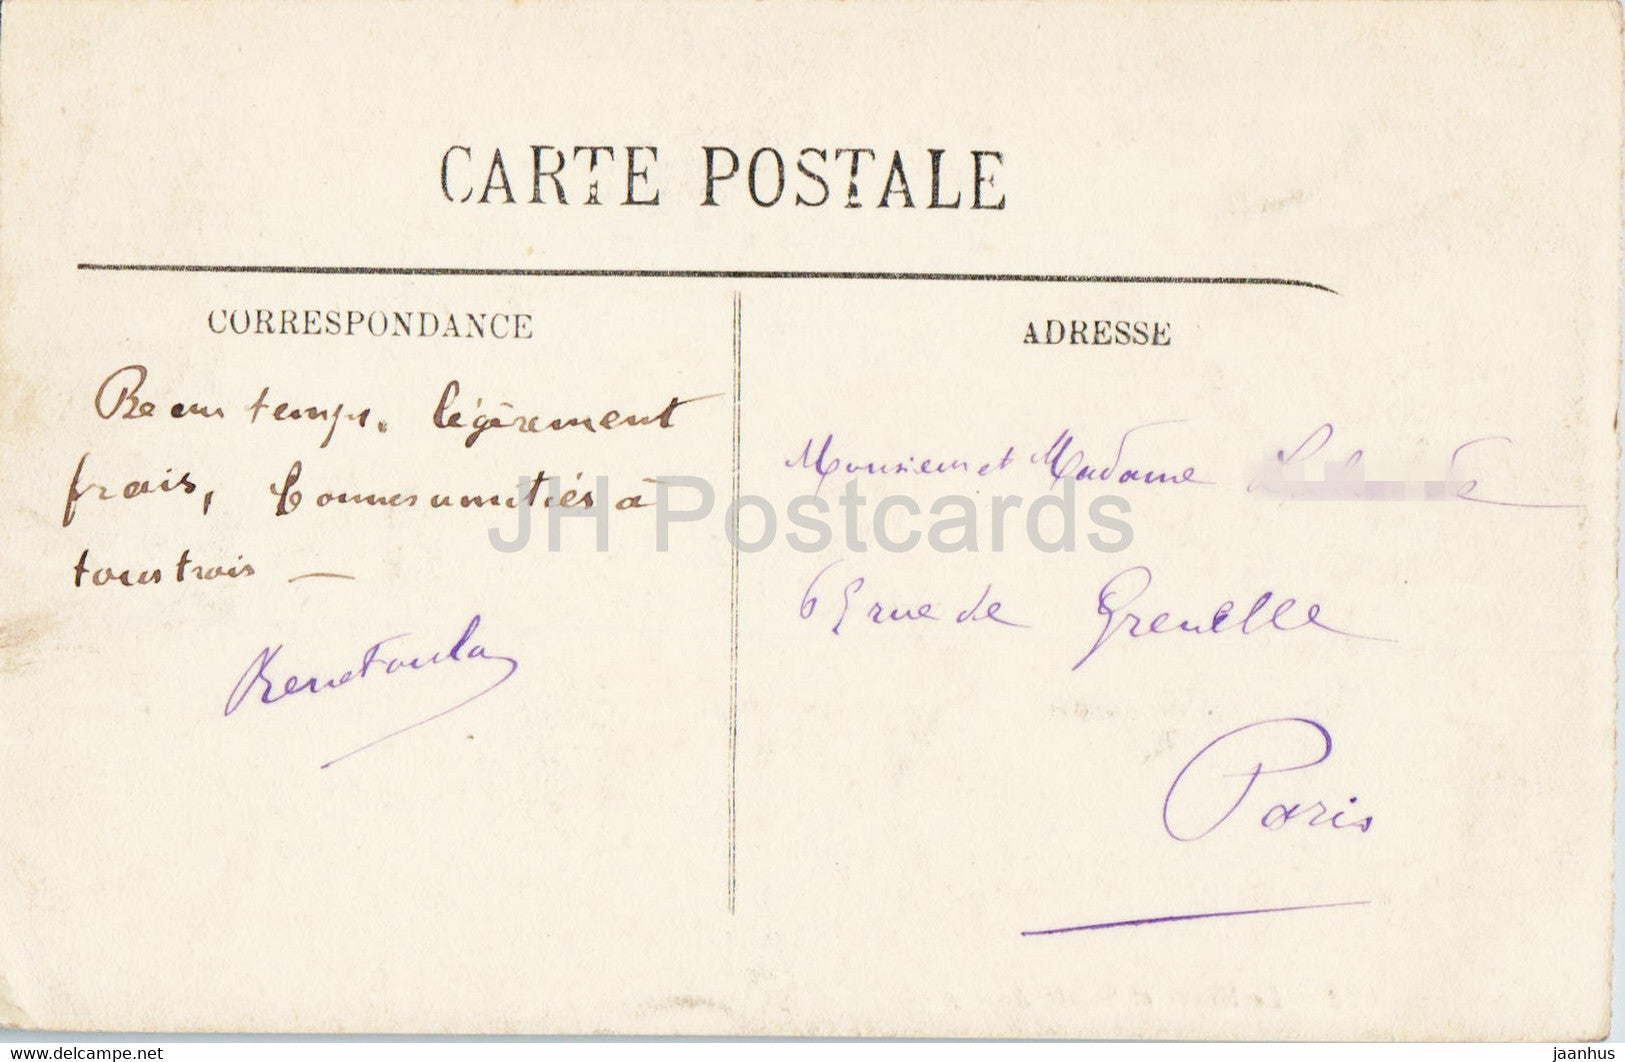 CARTE POSTALE
CORRESPONDANCE
Beau temps. légèrement
frais, bonnes amitiés à
tous trois —
ADRESSE
Monsieur et Madame
rue de Grenelle
Paris
JH Postcards
delcampe.net
jaanhus